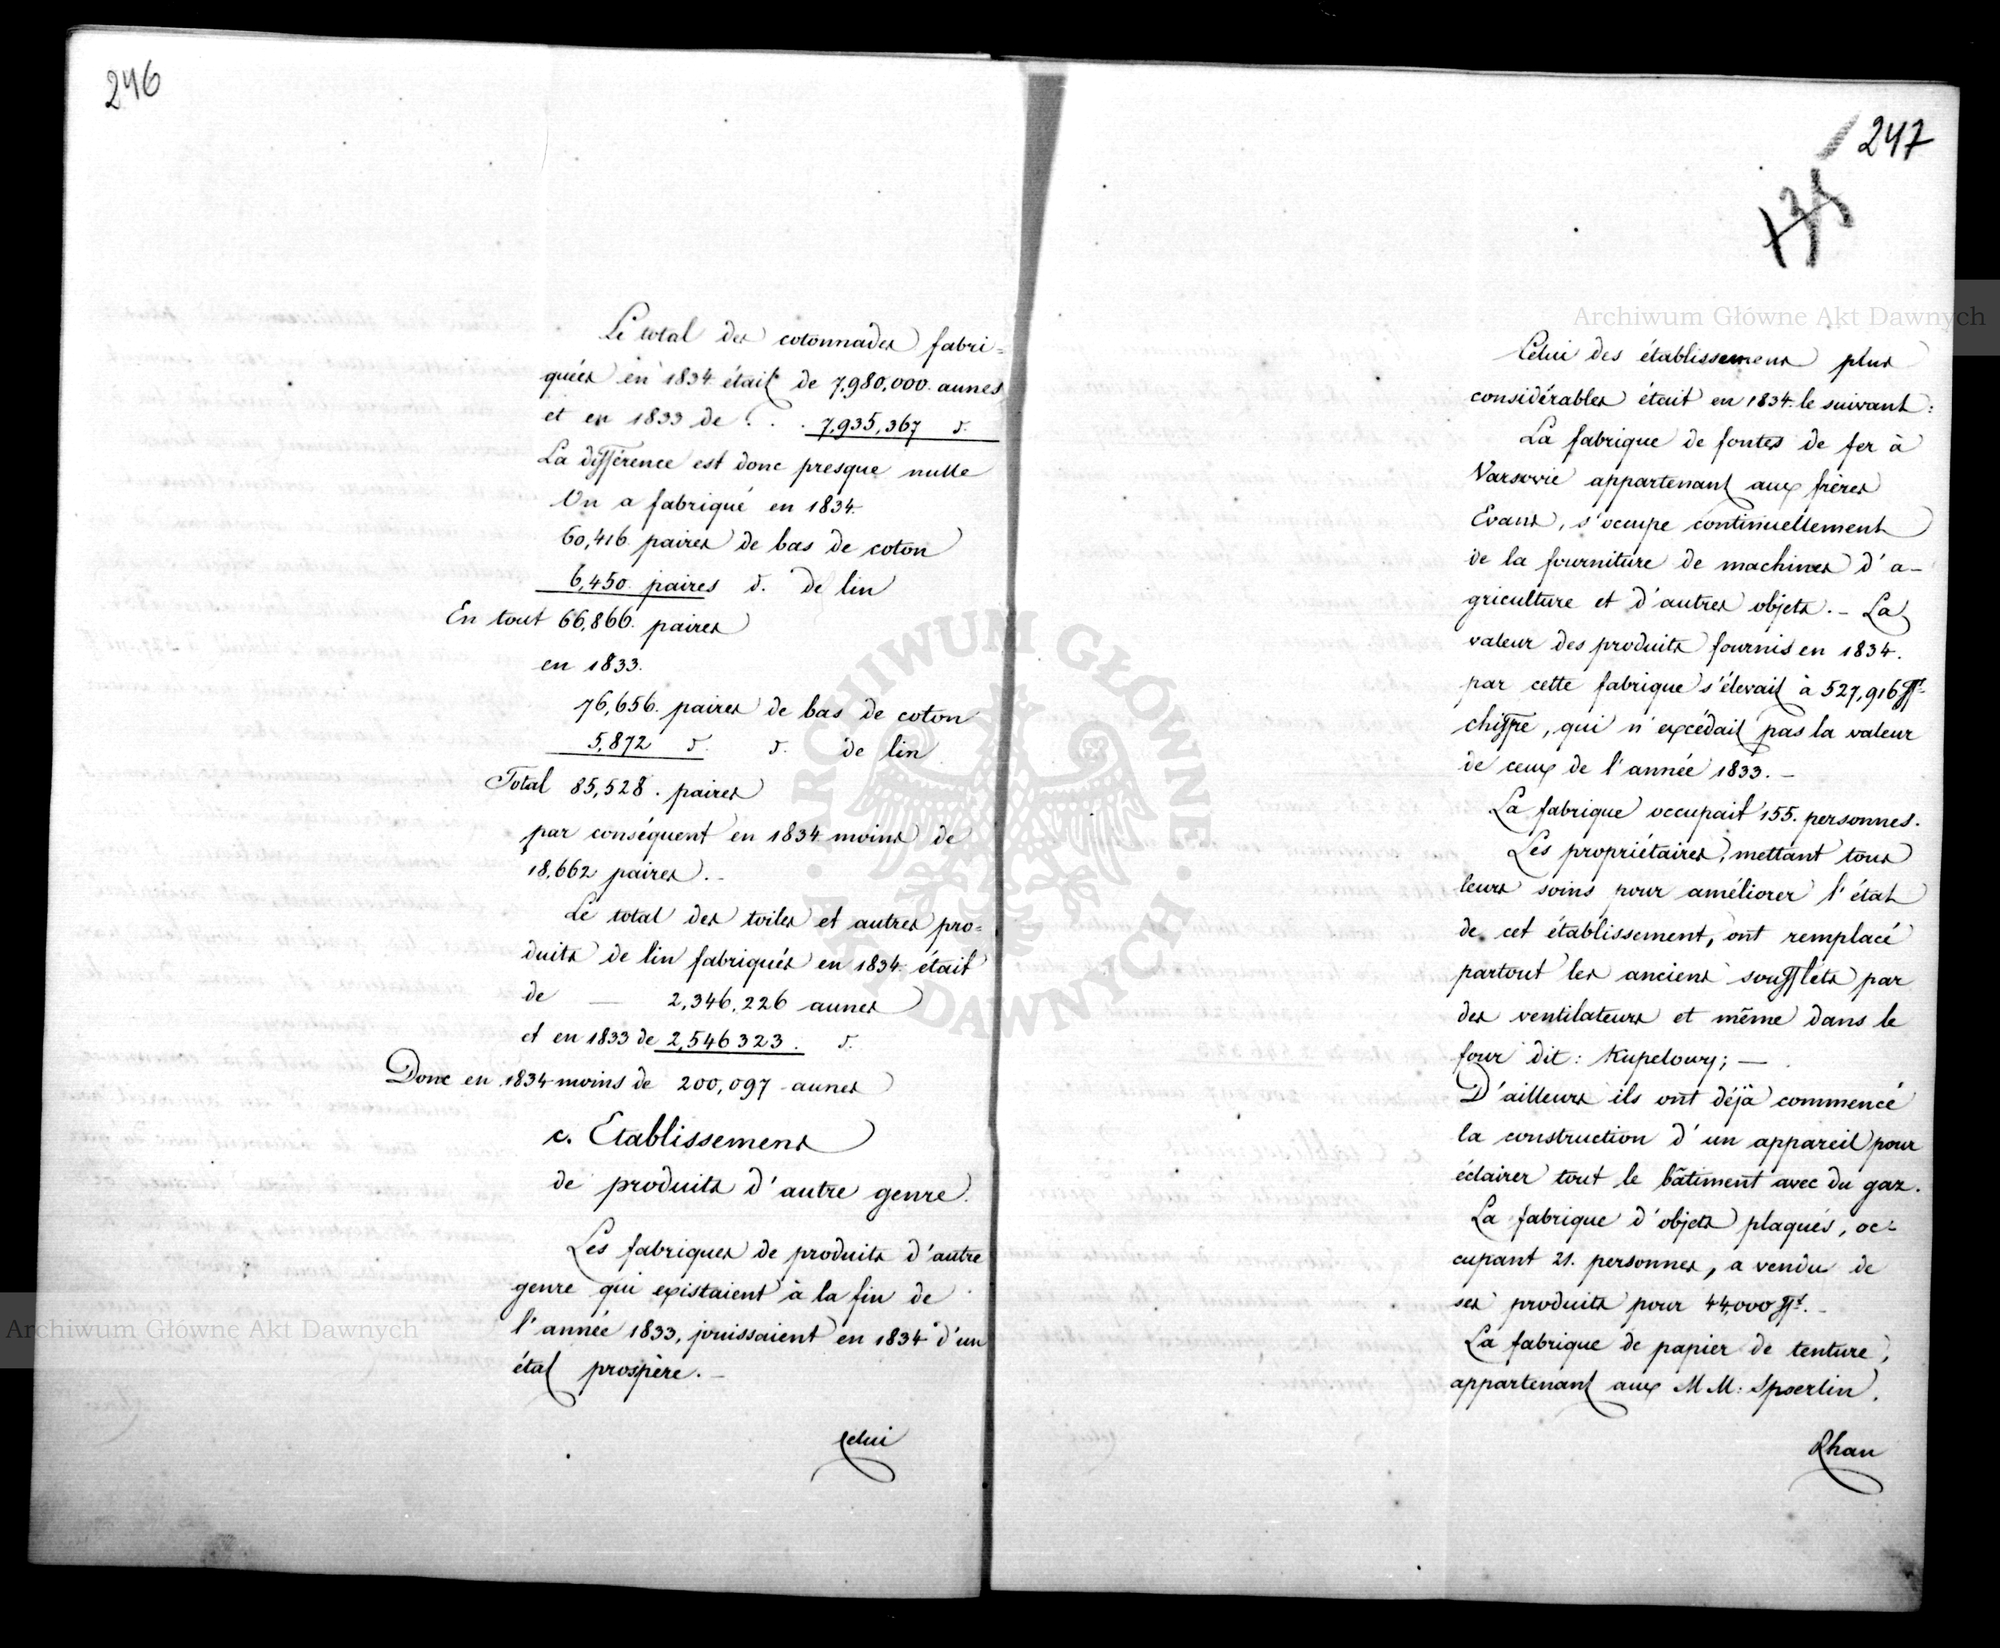 246
Le total des cotonnades fabri=
quées en 1834 était de 7,980,000 aunes
et en 1833 de . . . 7,935,367 d.
La différence est donc presque nulle
On a fabriqué en 1834.
60,416 paires de bas de coton
6,450 paires d. de lin
En tout 66,866 paires
en 1833.
76,656 paires de bas de coton
5,872 d. d. de lin
Total 85,528. paires
par conséquent en 1834 moins de
18,662 paires. –
Le total des toiles et autres pro=
duits de lin fabriqués en 1834 était
de — 2,346,226 aunes
et en 1833 de 2,546323. d.
Donc en 1834 moins de 200,097 aunes
c. Etablissemens
de produits d'autre genre.
Les fabriques de produits d'autre
genre qui existaient à la fin de
l'année 1833, jouissaient en 1834 d'un
état prospère. –
Celui
247
135
Celui des établissemens plus
considérables était en 1834 le suivant:
La fabrique de fontes de fer à
Varsovie appartenant aux frères
Evans, s'occupe continuellement
de la fourniture de machines d'a–
griculture et d'autres objets. – La
valeur des produits fournis en 1834.
par cette fabrique s'élevait à 527,916 ff.
chiffre, qui n'excédait pas la valeur
de ceux de l'année 1833. –
La fabrique occupait 155. personnes.
Les propriétaires, mettant tous
leurs soins pour améliorer l'état
de cet établissement, ont remplacé
partout les anciens soufflets par
des ventilateurs et même dans le
four dit: Kupelowy; —
D'ailleurs ils ont déjà commencé
la construction d'un appareil pour
éclairer tout le bâtiment avec du gaz.
La fabrique d'objets plaqués, oc-
cupant 21. personnes, a vendu de
ses produits pour 44,000 ff. –
La fabrique de papier de tenture,
appartenant aux MM: Spoerlin,
Rhan
Archiwum Główne Akt Dawnych
Archiwum Główne Akt Dawnych
ARCHIWUM GŁÓWNE AKT DAWNYCH